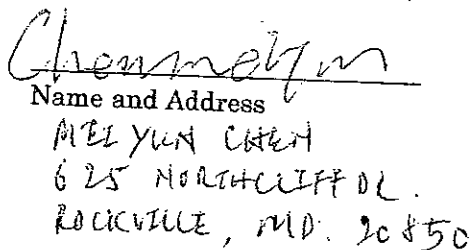 Chenmeiyun
Name and Address
MEI YUN CHEN
625 NORTHCLIFF DR.
ROCKVILLE, MD. 20850